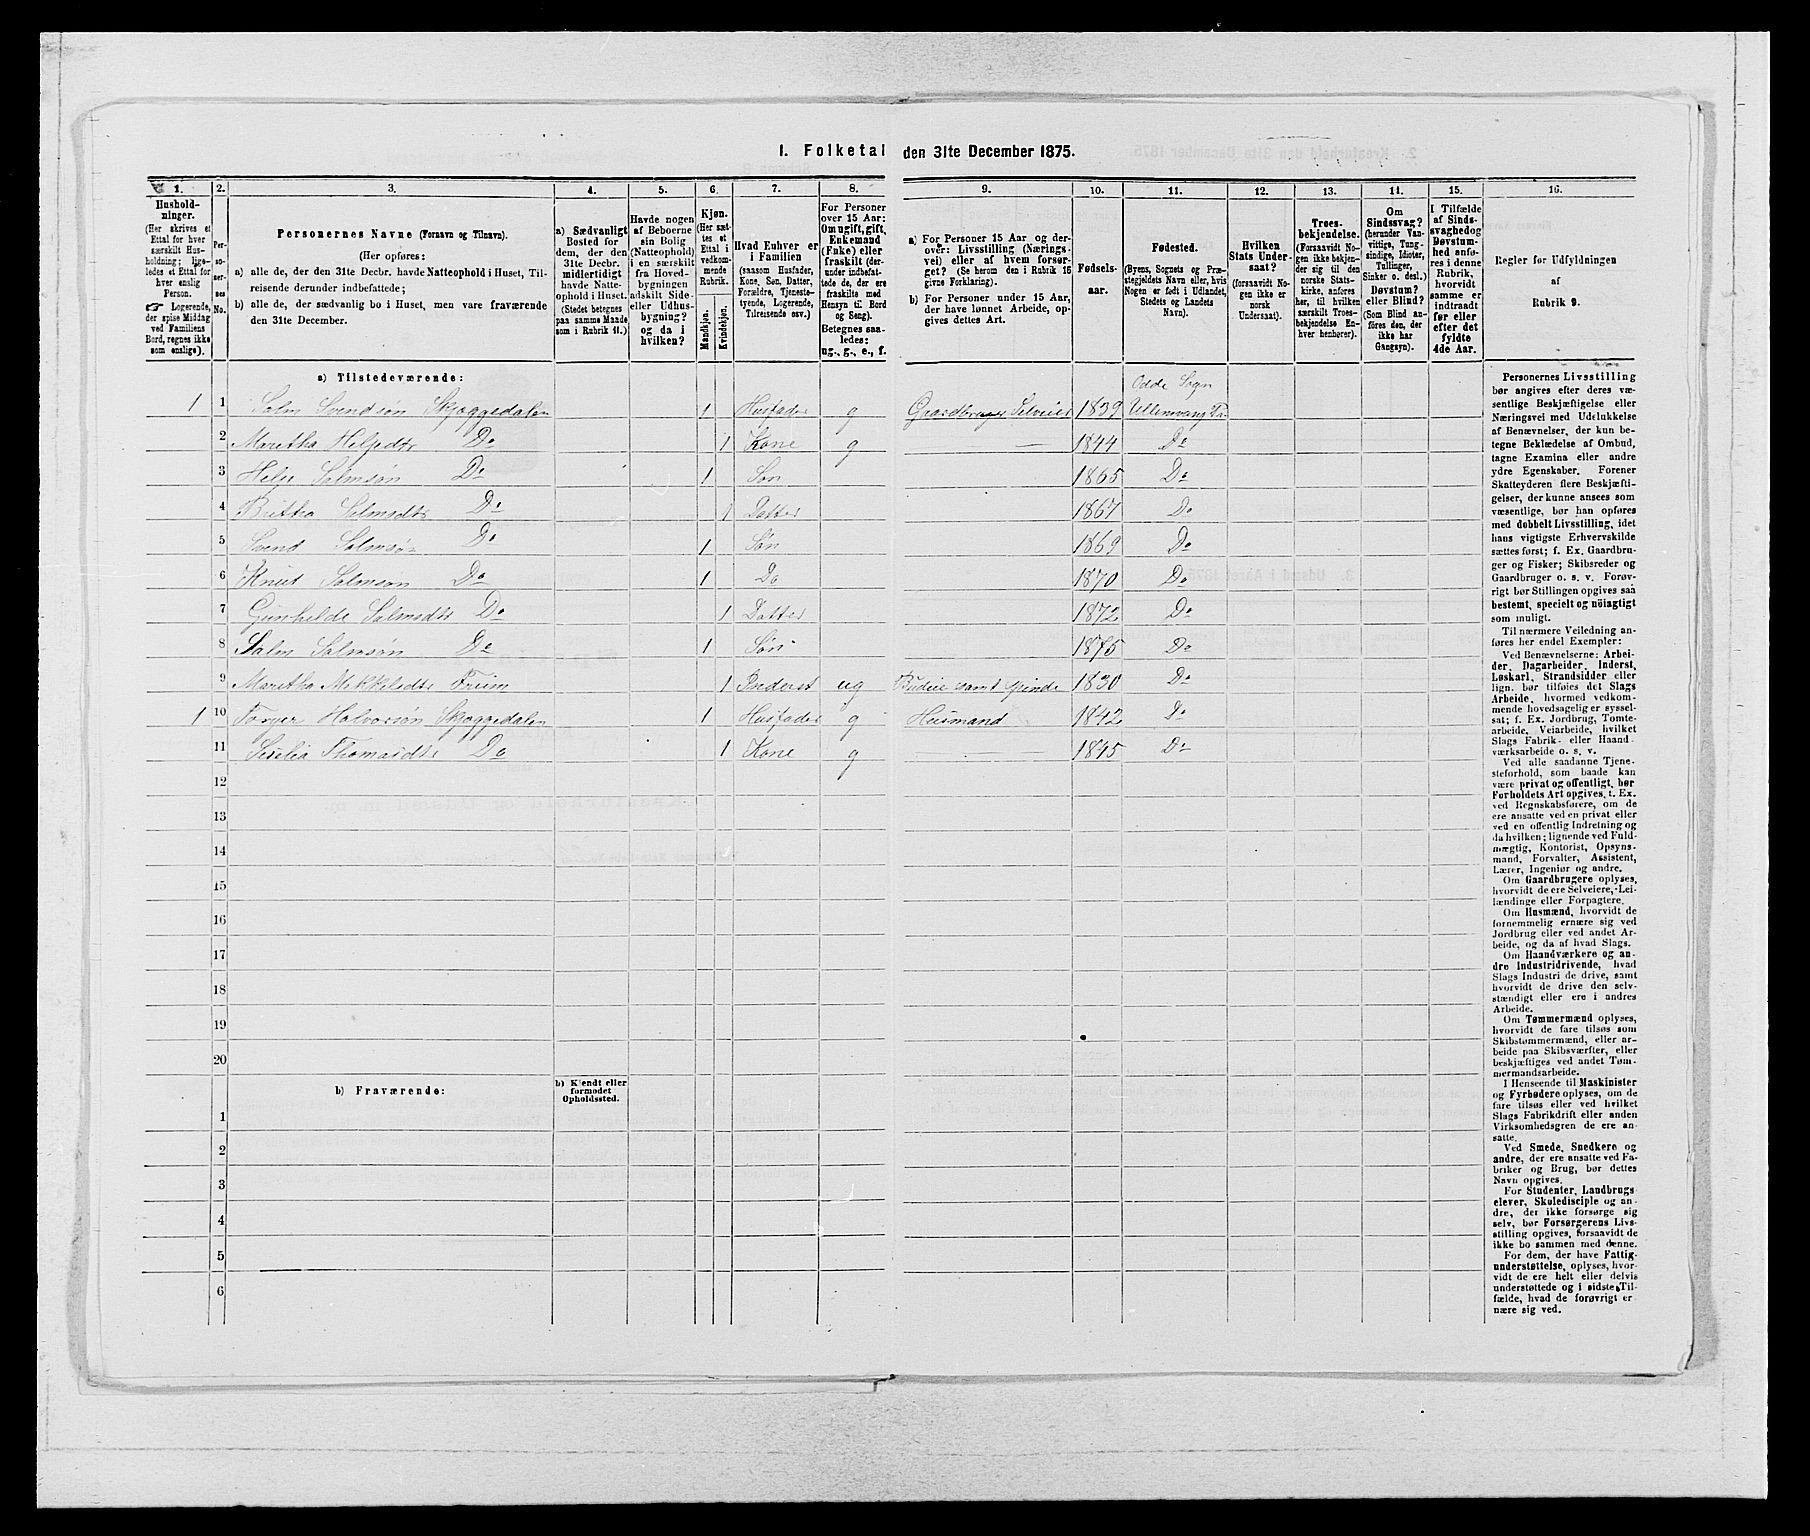 I. Folketal den 31te December 1875.
1. 2. 3. 4. 5. 6. 7. 8. 9. 10. 11. 12. 13. 14. 15. 16.
Hushold-
ninger.
(Her skrives et
Ettal for hver
særskilt Hus-
holdning; lige-
ledes et Ettal for
hver enslig
Person.
☞ Logerende,
der spise Middag
ved Familiens
Bord, regnes ikke
som enslige).
Per-
so-
ner-
nes
No.
Personernes Navne (Fornavn og Tilnavn).
(Her opføres:
a) alle de, der den 31te Decbr. havde Natteophold i Huset, Til-
reisende derunder indbefattede;
b) alle de, der sædvanlig bo i Huset, men vare fraværende
den 31te December.
a) Sædvanligt
Bosted for
dem, der den
31te Decbr.
midlertidigt
havde Natte-
ophold i Huset.
(Stedet betegnes
paa samme Maade
som i Rubrik 11.)
Havde nogen
af Beboerne
sin Bolig
(Natteophold)
i en særskilt
fra Hoved-
bygningen
adskilt Side-
eller Udhus-
bygning?
og da i
hvilken?
Kjøn.
(Her sæt-
tes et
Ettal i
vedkom-
mende
Rubrik.
Mandkjøn.
Kvindekjøn.
Hvad Enhver er
i Familien
(saasom Husfader,
Kone, Søn, Datter,
Forældre, Tjeneste-
tyende, Logerende,
Tilreisende osv.)
For Personer
over 15 Aar:
Om ugift, gift,
Enkemand
(Enke) eller
fraskilt (der-
under indbefat-
tede de, der ere
fraskilte med
Hensyn til Bord
og Seng).
Betegnes saa-
ledes:
ug., g., e., f.
a) For Personer 15 Aar og der-
over: Livsstilling (Nærings-
vei) eller af hvem forsør-
get? (Se herom den i Rubrik 16
givne Forklaring).
b) For Personer under 15 Aar,
der have lønnet Arbeide, op-
gives dettes Art.
Fødsels-
aar.
Fødested.
(Byens, Sognets og Præ-
stegjeldets Navn eller, hvis
Nogen er født i Udlandet,
Stedets og Landets
Navn).
Hvilken
Stats Under-
saat?
(forsaavidt No-
gen ikke er
norsk
Undersaat).
Troes-
bekjendelse.
(Forsaavidt No-
gen ikke bekjen-
der sig til den
norske Stats-
kirke, anføres
her, til hvilken
særskilt Troes-
bekjendelse En-
hver henhører).
Om
Sindssvag?
(herunder Van-
vittige, Tung-
sindige, Idioter,
Tullinger,
Sinker o. desl.)
Døvstum?
eller Blind?
(Som Blind an-
føres den, der
ikke har
Gangsyn).
I Tilfælde
af Sinds-
svaghed og
Døvstum-
hed anfø-
res i denne
Rubrik,
hvorvidt
samme er
indtraadt
før eller
efter det
fyldte
4de Aar.
Regler for Udfyldningen
af
Rubrik 9.
a) Tilstedeværende:
Odde Sogn
1 1 Salm Svendsøn Skjæggedalen 1 Husfader g Gaardbruger Selveier 1839 Ullensvang
2 Maretha Helgedtr Do 1 Kone g 1844 Do
3 Helge Salmsøn Do 1 Søn 1865 Do
4 Britha Salmsdtr Do 1 Datter 1867 Do
5 Svend Salmsøn Do 1 Søn 1869 Do
6 Knud Salmsøn Do 1 Do 1870 Do
7 Gunhilde Salmsdtr Do 1 Datter 1872 Do
8 Salm Salmsøn Do 1 Søn 1875 Do
9 Maretha Mikkelsdtr 1 Inderst ug Budeie samt spinde 1830 Do
1 10 Torger Halvorsøn Skjæggedalen 1 Husfader g Husmand 1842 Do
11 Thomasdtr Do 1 Kone g 1845 Do
12
13
14
15
16
17
18
19
20
b) Fraværende:
b) Kjendt eller
formodet
Opholdssted.
1
2
3
4
5
6
Personernes Livsstilling
bør angives efter deres væ-
sentlige Beskjæftigelse eller
Næringsvei med Udelukkelse
af Benævnelser, der kun be-
tegne Beklædelse af Ombud,
tagne Examina eller andre
ydre Egenskaber. Forener
Skatteyderen flere Beskjæfti-
gelser, der kunne ansees som
væsentlige, bør han opføres
med dobbelt Livsstilling, idet
hans vigtigste Erhvervskilde
sættes først; f. Ex. Gaardbru-
ger og Fisker; Skibsreder og
Gaardbruger o. s. v. Forøv-
rigt bør Stillingen opgives saa
bestemt, specielt og nöiagtigt
som muligt.
Til nærmere Veiledning an-
føres her endel Exempler:
Ved Benævnelserne: Arbei-
der, Dagarbeider, Inderst,
Løskarl, Strandsidder eller
lign. bør tilføies det Slags
Arbeide, hvormed vedkom-
mende hovedsagelig er syssel-
sat; f. Ex. Jordbrug, Tomte-
arbeide, Veiarbeide, hvilket
Slags Fabrik- eller Haand-
værksarbeide o. s. v.
Ved alle saadanne Tjene-
steforhold, som baade kan
være privat og offentligt, bør
Forholdets Art opgives, t. Ex.
ved Regnskabsførere, om de
ere ansatte ved en privat eller
ved en offentlig Indretning og
da hvilken; lignende ved Fuld-
mægtig, Kontorist, Opsyns-
mand, Forvalter, Assistent,
Lærer, Ingeniør og andre.
Om Gaardbrugere oplyses,
hvorvidt de ere Selveiere, Lei-
lændinge eller Forpagtere.
Om Husmænd, hvorvidt de
fornemmelig ernære sig ved
Jordbrug eller ved andet Ar-
beide, og da af hvad Slags.
Om Haandværkere og an-
dre Industridrivende, hvad
Slags Industri de drive, samt
hvorvidt de drive den selv-
stændigt eller ere i andres
Arbeide.
Om Tømmermænd oplyses,
hvorvidt de fare tilsøs som
Skibstømmermænd, eller ar-
beide paa Skibsværfter, eller
beskjæftiges ved andet Tøm-
mermandsarbeide.
I Henseende til Maskinister
og Fyrbødere oplyses, om de
fare tilsøs eller ved hvilket
Slags Fabrikdrift eller anden
Virksomhedsgren de ere an-
satte.
Ved Smede, Snedkere og
andre, der ere ansatte ved Fa-
briker og Brug, bør dettes
Navn opgives.
For Studenter, Landbrugs-
elever, Skoledisciple og an-
dre, der ikke forsørge sig
selv, bør Forsørgerens Livs-
stilling opgives, forsaavidt de
ikke bo sammen med denne.
For dem, der have Fattig-
understøttelse, oplyses, hvor-
vidt de ere helt eller delvis
understøttede og i sidste Til-
fælde, hvad de forøvrigt er-
nære sig ved.